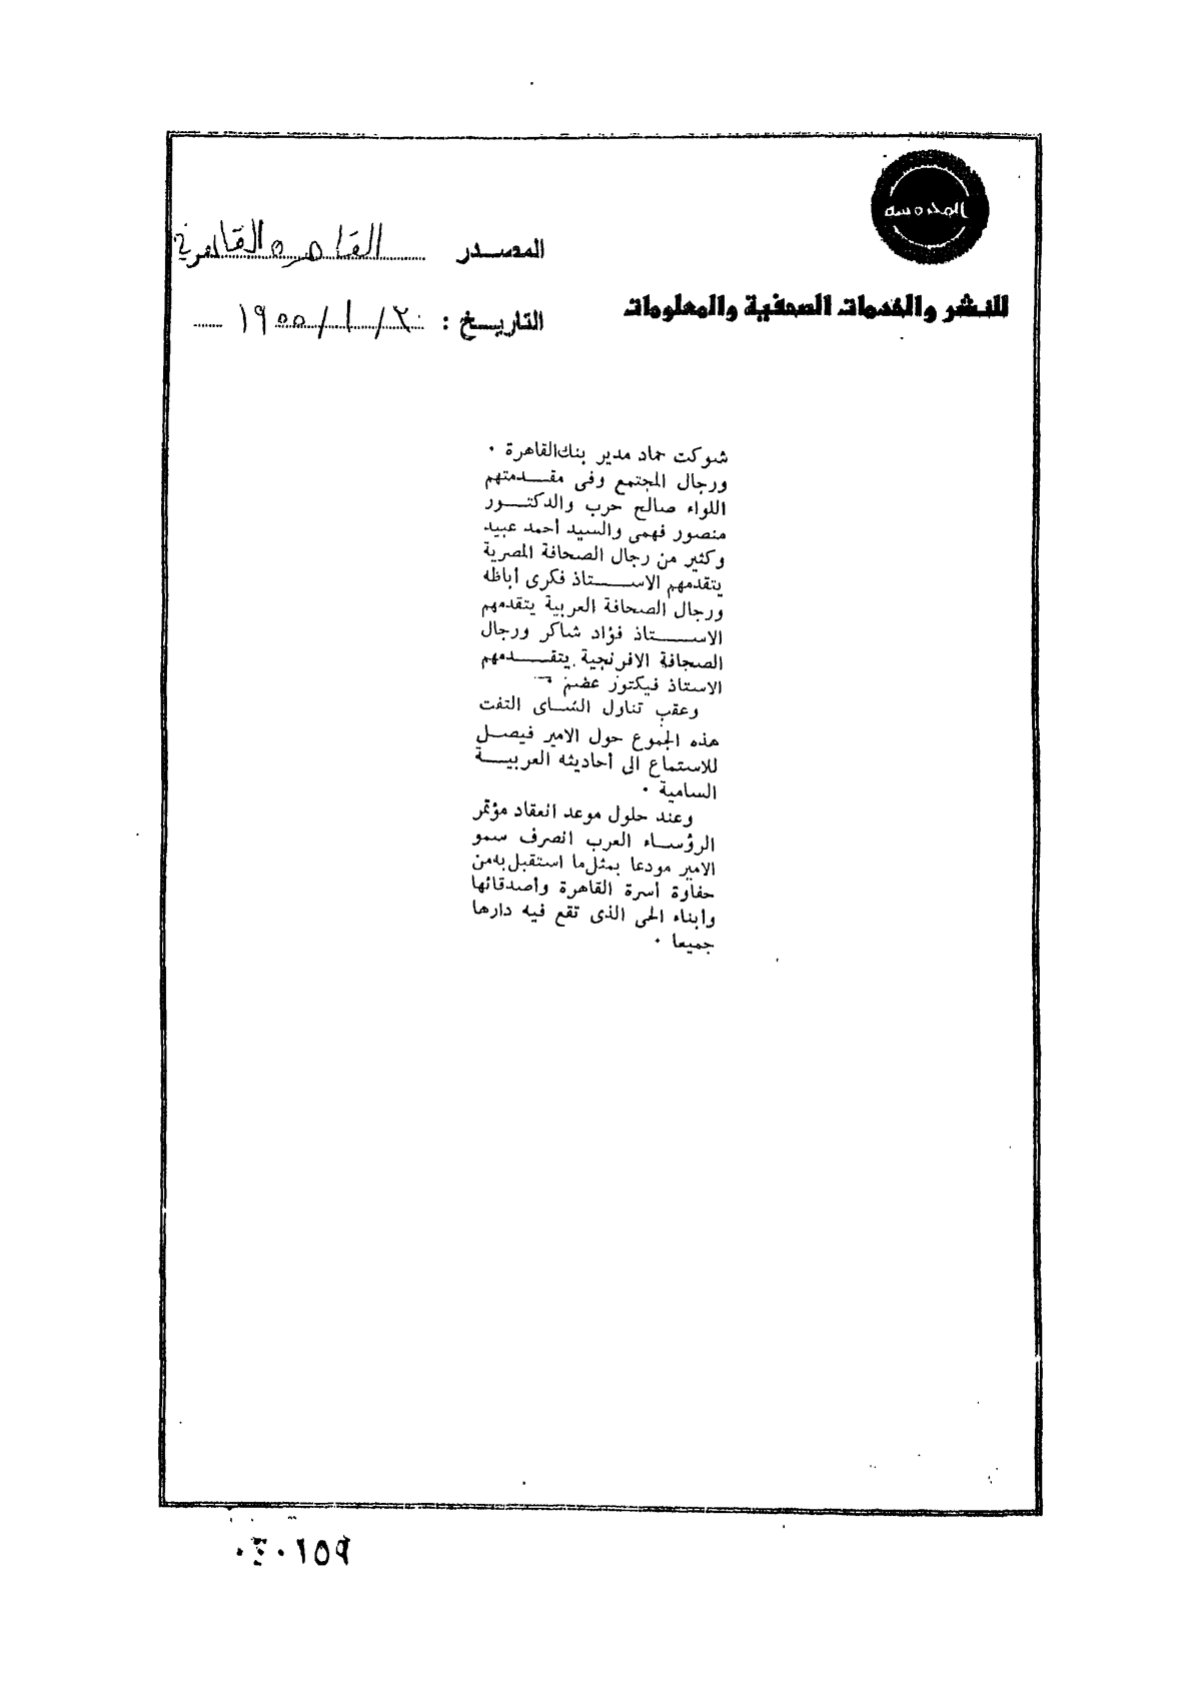 المحروسة
للنشر والخدمات الصحفية والمعلومات
المصدر القاهرة القاهرية
التاريخ : ٢٠/١/١٩٥٥
شوكت حماد مدير بنك القاهرة ٠
ورجال المجتمع وفى مقدمتهم
اللواء صالح حرب والدكتور
منصور فهمى والسيد أحمد عبيد
وكثير من رجال الصحافة المصرية
يتقدمهم الاستاذ فكرى أباظه
ورجال الصحافة العربية يتقدمهم
الاستاذ فؤاد شاكر ورجال
الصحافة الافرنجية يتقدمهم
الاستاذ فيكتور
وعقب تناول الشاى التفت
هذه الجموع حول الامير فيصل
للاستماع الى أحاديثه العربية
السامية ٠
وعند حلول موعد انعقاد مؤتمر
الرؤساء العرب انصرف سمو
الامير مودعا بمثل ما استقبل به من
حفاوة أسرة القاهرة وأصدقائها
وأبناء الحى الذى تقع فيه دارها
جميعا ٠